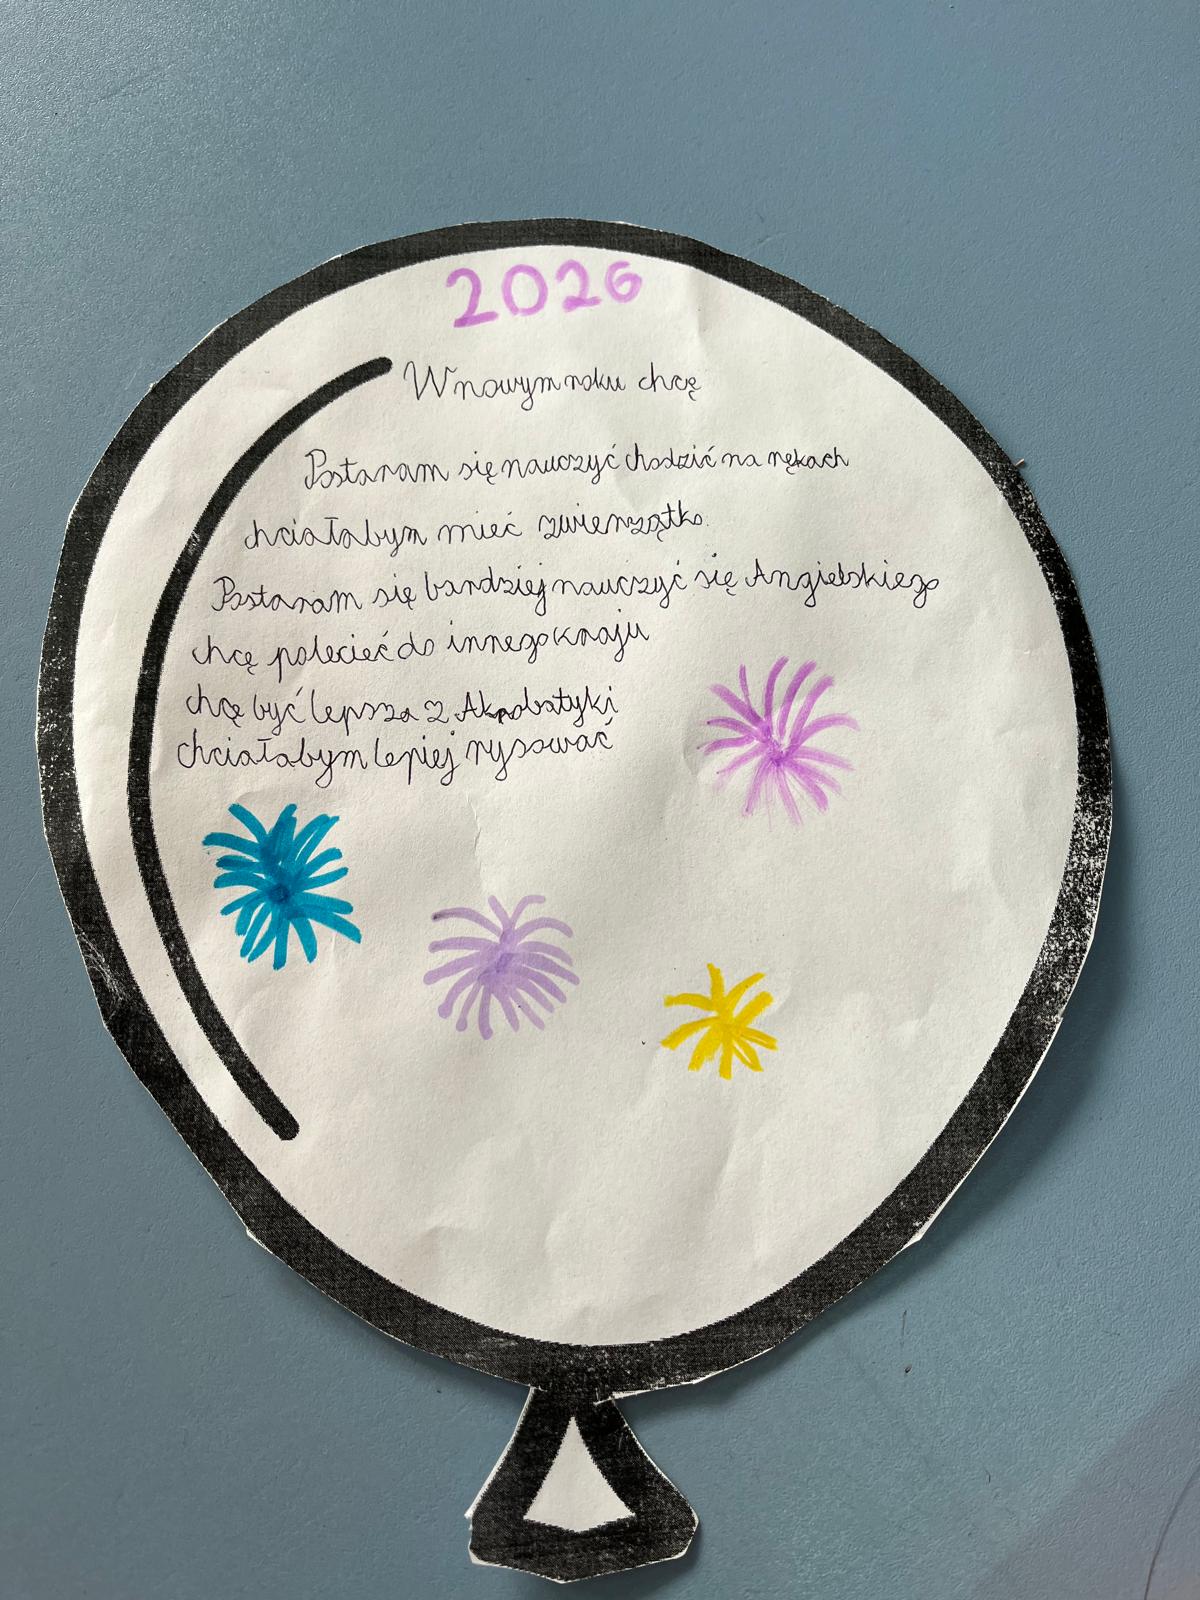 2026
W nowym roku chcę
Postaram się nauczyć chodzić na rękach
chciałabym mieć zwierzątko.
Postaram się bardziej nauczyć się Angielskiego
chcę polecieć do innego kraju
chcę być lepsza z Akrobatyki
chciałabym lepiej rysować